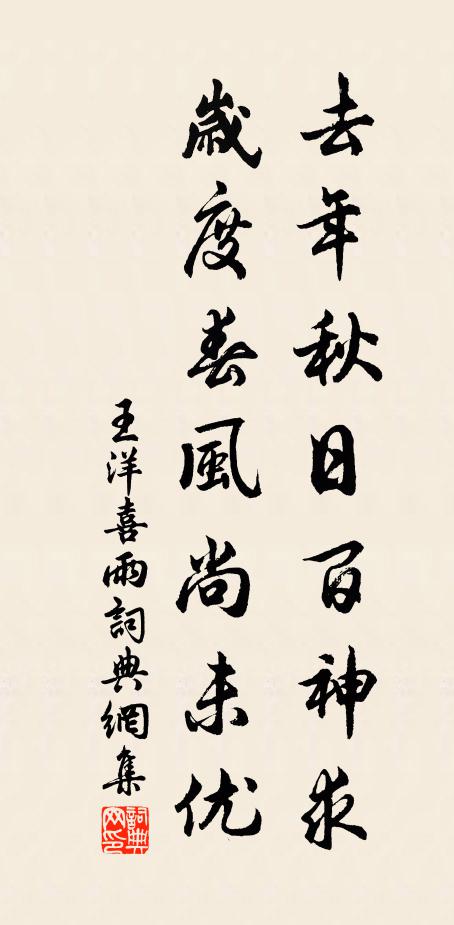 去年秋日百神求
歲度春風尚未优
王洋喜雨詞典網集
詞典网印